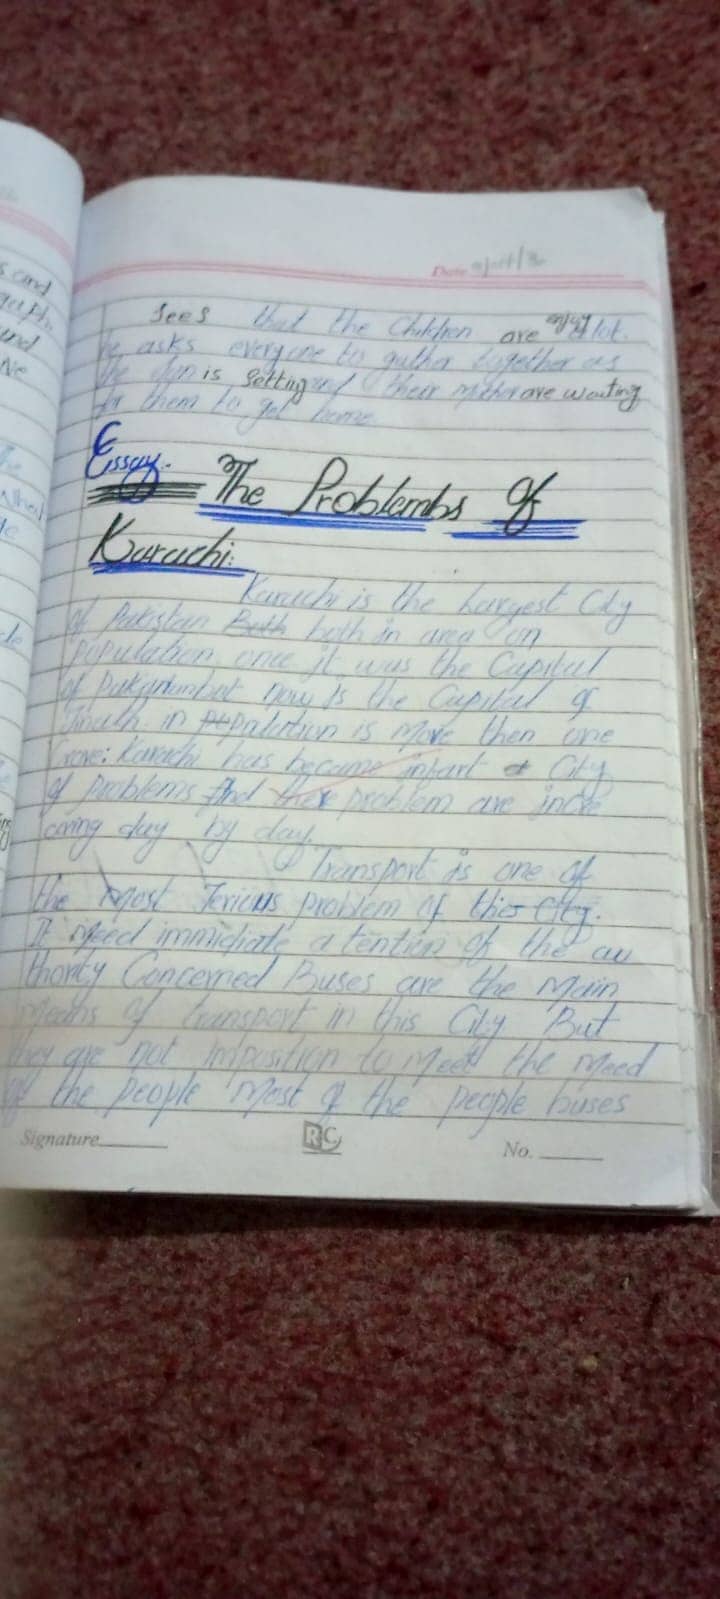 Date
Sees that the Children are enjoy a lot.
he asks everyone to gather together as
the sun is setting and their mother are waiting
for them to get home.
Essay. The Problembs of
Karachi:
Karachi is the Largest City
of Pakistan Both both in area on
population once it was the Capital
of now is the Capital of
in population is more then one
Karachi has became infart a City
of problems And problem are incre
cing day by day.
Transport is one of
the most Serious problem of this city.
It need immidiate atention of the au
thority Concerned Buses are the main
means of transport in this City But
they are not imposition to meet the need
of the people most of the people buses
Signature
RC
No.
s and
und
Ne